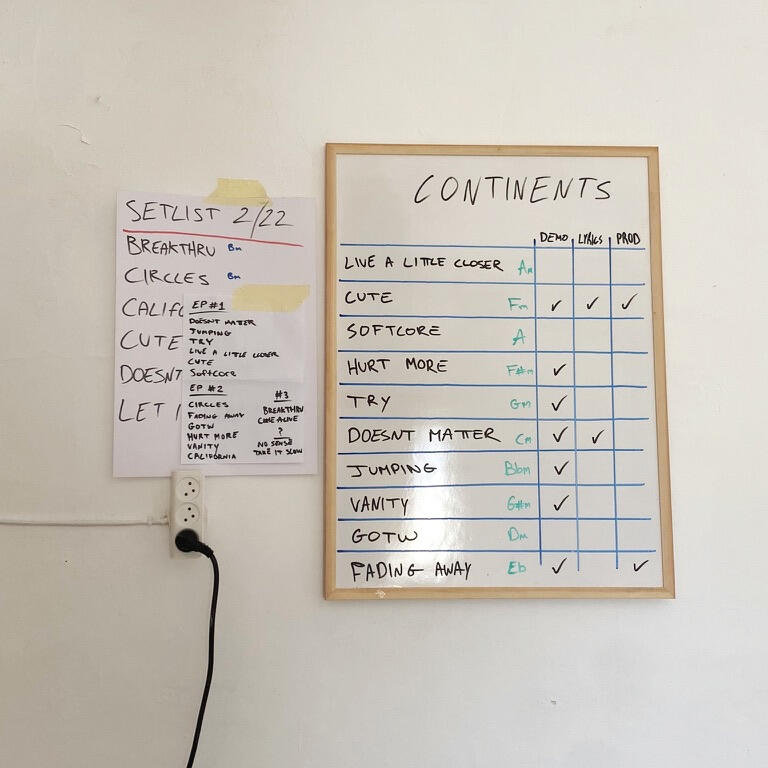 SETLIST 2/22
BREAKTHRU Bm
CIRCLES Bm
CUTE
LET
EP #1
DOESNT MATTER
JUMPING
TRY
LIVE A LITTLE CLOSER
CUTE
SOFTCORE
EP #2
CIRCLES
FADING AWAY
GOTW
HURT MORE
VANITY
CALIFORNIA
#3
BREAKTHRU
COME ALIVE
?
NO SENSE
TAKE IT SLOW
CONTINENTS
DEMO LYRICS PROD
LIVE A LITTLE CLOSER Am
CUTE Fm ✓ ✓ ✓
SOFTCORE A
HURT MORE F#m ✓
TRY Gm ✓
DOESNT MATTER Cm ✓ ✓
JUMPING Bbm ✓
VANITY G#m ✓
GOTW Dm
FADING AWAY Eb ✓ ✓